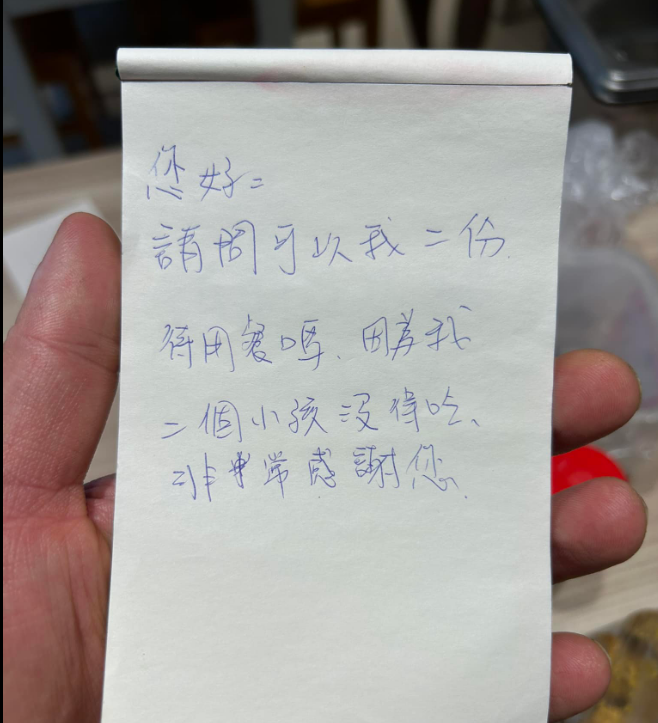 您好=
請問可以我二份
待用餐嗎、因為我
二個小孩沒得吃、
非常感謝您